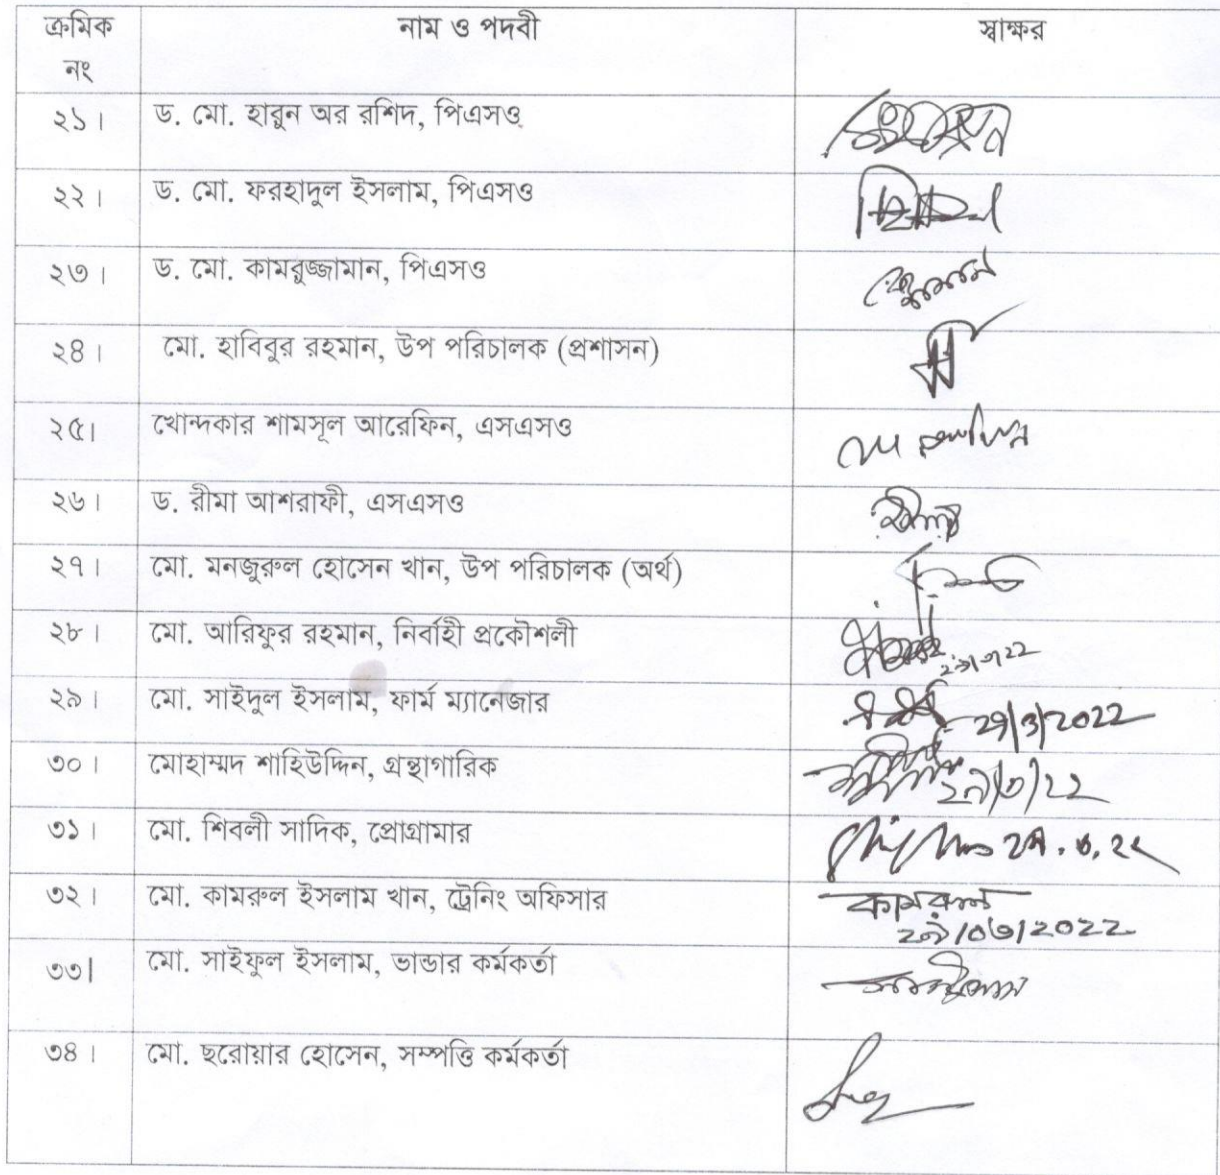 ক্রমিক নাম ও পদবী স্বাক্ষর
নং
২১। ড. মো. হারুন অর রশিদ, পিএসও
২২। ড. মো. ফরহাদুল ইসলাম, পিএসও
২৩। ড. মো. কামরুজ্জামান, পিএসও
২৪। মো. হাবিবুর রহমান, উপ পরিচালক (প্রশাসন)
২৫। খোন্দকার শামসূল আরেফিন, এসএসও
২৬। ড. রীমা আশরাফী, এসএসও
২৭। মো. মনজুরুল হোসেন খান, উপ পরিচালক (অর্থ)
২৮। মো. আরিফুর রহমান, নির্বাহী প্রকৌশলী
২৯। মো. সাইদুল ইসলাম, ফার্ম ম্যানেজার 29/3/2022
৩০। মোহাম্মদ শাহিউদ্দিন, গ্রন্থাগারিক ২৯/৩/২২
৩১। মো. শিবলী সাদিক, প্রোগ্রামার
৩২। মো. কামরুল ইসলাম খান, ট্রেনিং অফিসার কামরুল
২৯/০৩/২০২২
৩৩। মো. সাইফুল ইসলাম, ভান্ডার কর্মকর্তা
৩৪। মো. ছরোয়ার হোসেন, সম্পত্তি কর্মকর্তা